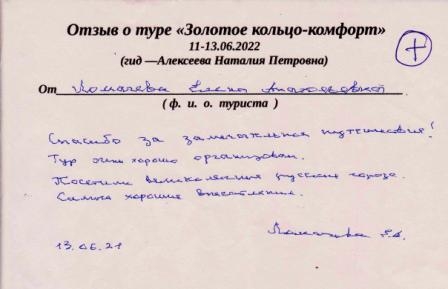 Отзыв о туре «Золотое кольцо-комфорт»
11-13.06.2022
(гид —Алексеева Наталия Петровна)
+
От Ломачева Елена Анатольевной
( ф. и. о. туриста )
Спасибо за замечательное путешествие!
Тур очень хорошо организован.
Посетили великолепные русские города.
Самые хорошие впечатления.
13.06.21
Ломачева Е.А.